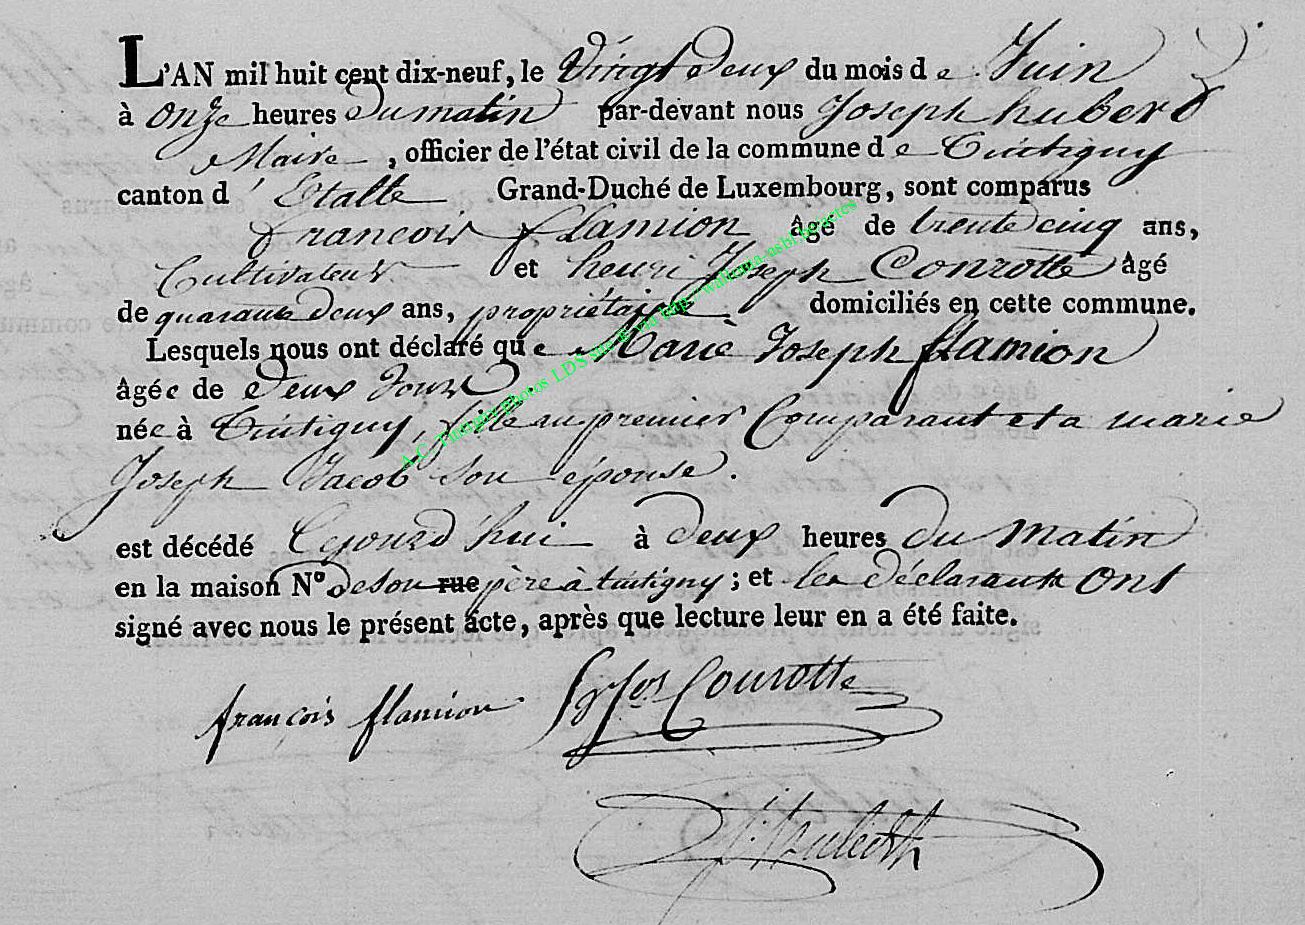 L'AN mil huit cent dix-neuf, le Vingt deux du mois de Juin
à onze heures du matin par-devant nous Joseph hubert
Maire, officier de l'état civil de la commune de Tintigny
canton d'Etalle Grand-Duché de Luxembourg, sont comparus
francois flamion âgé de trente cinq ans,
Cultivateur et henri Joseph Conrotte âgé
de quarante deux ans, propriétaire domiciliés en cette commune.
Lesquels nous ont déclaré que Marie Joseph flamion
âgée de deux Jours
née à Tintigny, fille au premier Comparant et a marie
Joseph Jacob son épouse.
est décédé Cejourd'hui à deux heures du matin
en la maison N° de son rue père à tintigny ; et les déclarants ont
signé avec nous le présent acte, après que lecture leur en a été faite.
françois flamion Conrotte
A.C. Tintigny photos LDS sur le via http://wallonia-asbl.be/actes